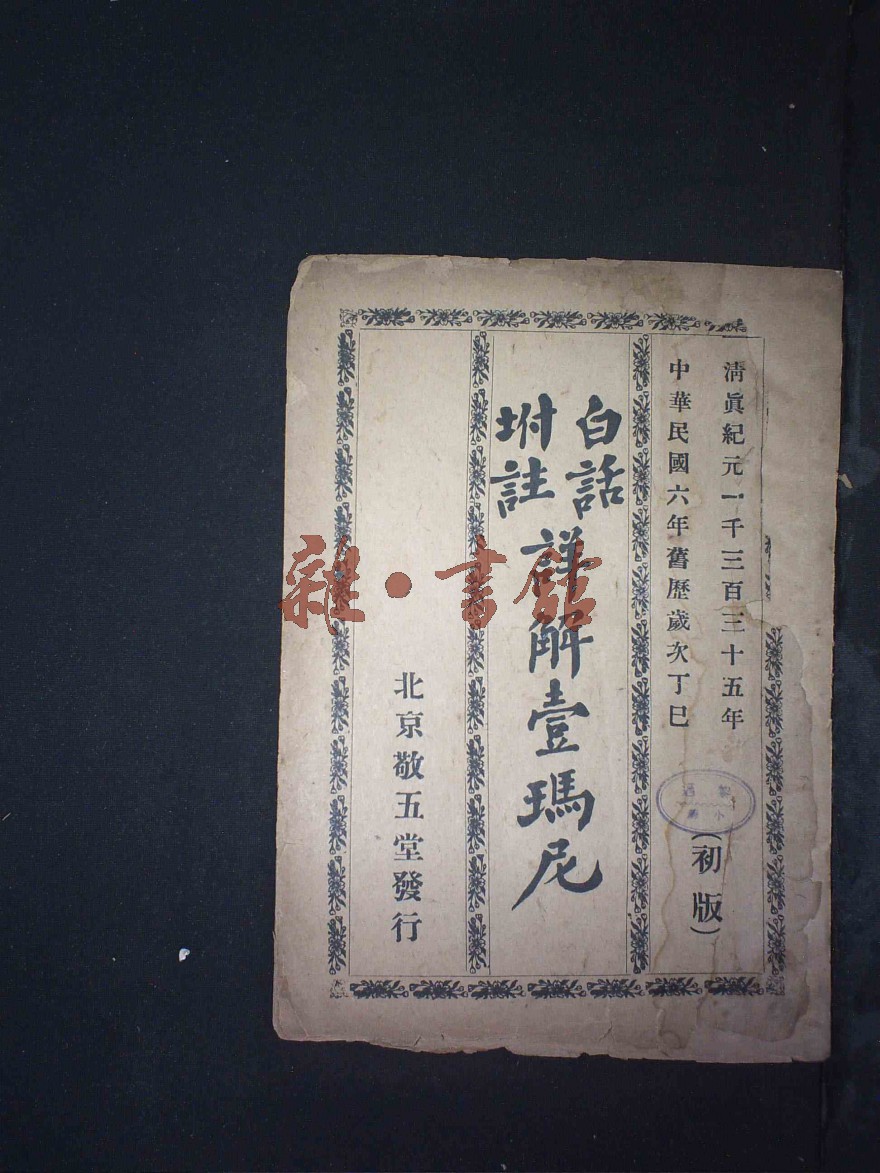 清眞紀元一千三百三十五年
中華民國六年舊歷歲次丁巳
(初版)
白話
坿註
詳解壹瑪尼
北京敬五堂發行
雜·書館